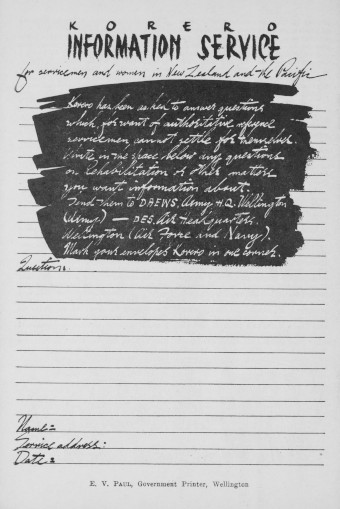 KORERO
INFORMATION SERVICE
for servicemen and women in New Zealand and the Pacific
Korero has been asked to answer questions
which for want of authoritative referee
servicemen cannot settle for themselves.
Write in the space below any questions
on rehabilitation or other matters
you want information about.
Send them to DAEWS, Army H.Q. Wellington
(Army) — DES. Air Headquarters.
Wellington (Air Force and Navy).
Mark your envelopes Korero in one corner.
Question:
Name:
Service address:
Date:
E. V. PAUL, Government Printer, Wellington